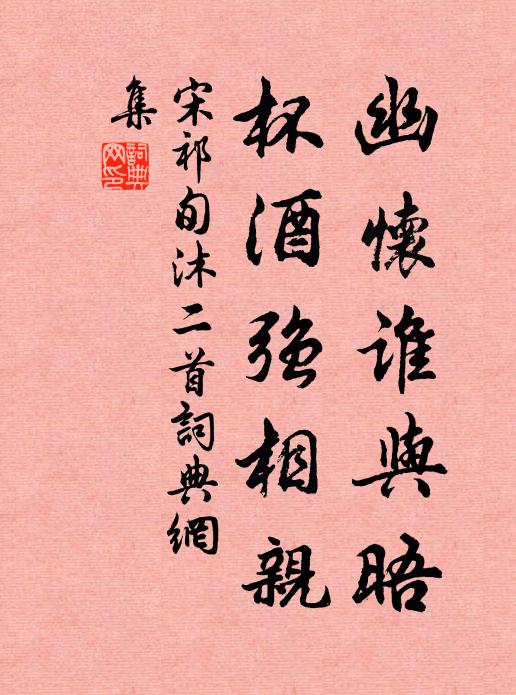 幽懷誰與晤
杯酒強相親
宋祁旬沐二首詞典網
集
詞典網印